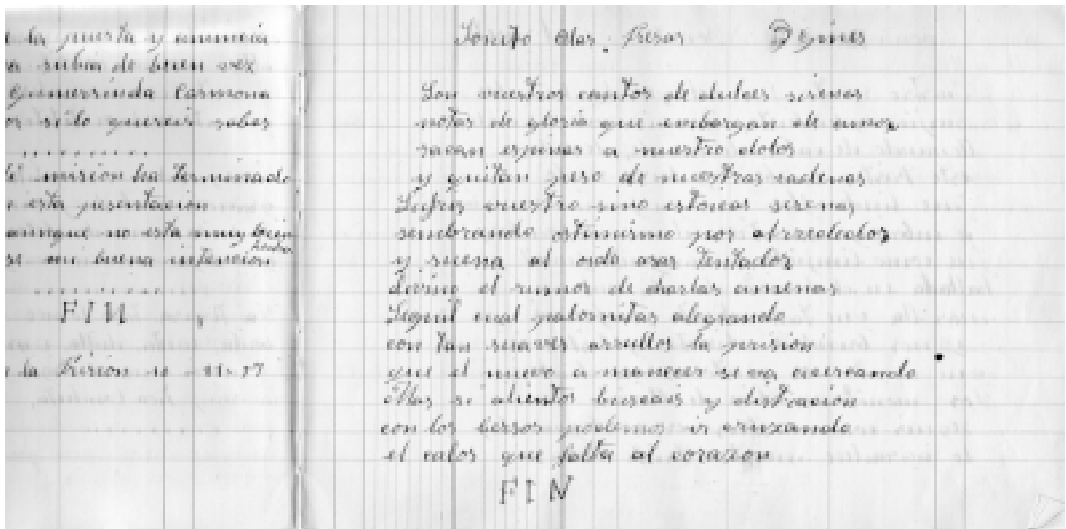 la puerta y anuncia
subia de buen vez
Gumersinda Carmona
si lo quereis saber
..........
mision ha terminado
esta presentacion
aunque no esta muy bien
mi buena intencion
..........
FIN
la Prision 10-11-37
Soneto a las Presas
Son vuestros cantos de dulces sirenas
notas de gloria que embargan de amor
sacan espinas a nuestro dolor
y quitan peso de nuestras cadenas
Sufris vuestro sino estoicas serenas
sembrando optimismo por alrrededor
y suena al oido asas tentador
divino el rumor de charlas amenas
Seguid cual palomitas alegrando
con tan suaves arrullos la prision
que el nuevo amanecer se va acercando
Mas si alientos buscais y distracion
con los versos podemos ir cruzando
el calor que falta al corazon
FIN